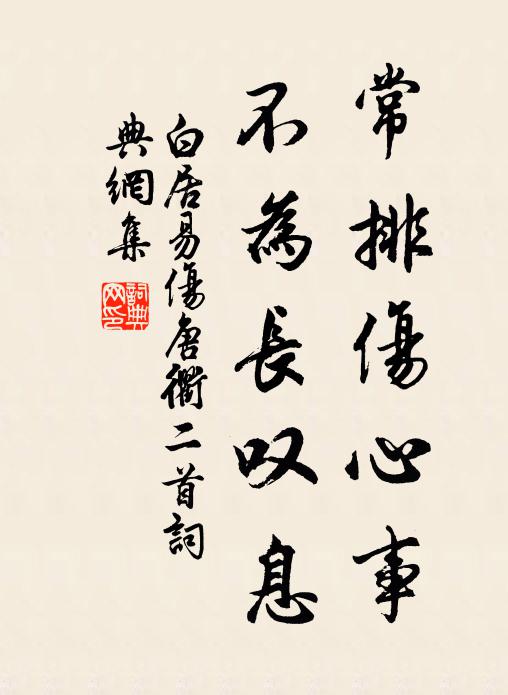 常排傷心事
不為長叹息
白居易傷唐衢二首詞
典網集
詞典
网印